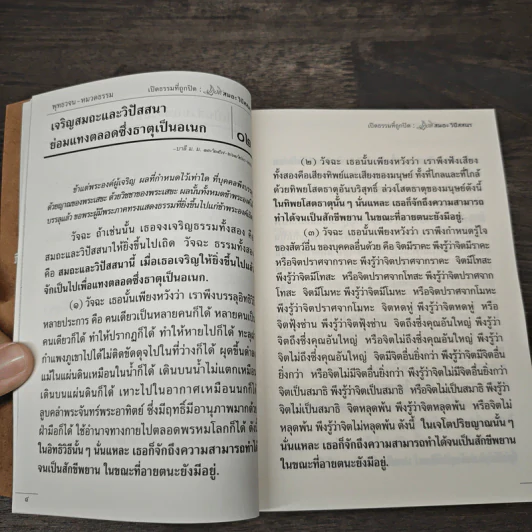 พุทธวจน - หมวดธรรม
เจริญสมถะและวิปัสสนา
ย่อมแทงตลอดซึ่งธาตุเป็นอเนก
-บาลี ม. ม.
ข้าแต่พระองค์ผู้เจริญ ผลที่กำหนดไว้เท่าใด ที่บุคคลพึง
ด้วยญาณของพระเสขะ ด้วยวิชชาของพระเสขะ ผลนั้นทั้งหมดข้าพระองค์
บรรลุแล้ว ขอพระผู้มีพระภาคทรงแสดงธรรมที่ยิ่งขึ้นไปแก่ข้าพระองค์
วัจฉะ ถ้าเช่นนั้น เธอจงเจริญธรรมทั้งสอง
สมถะและวิปัสสนาให้ยิ่งขึ้นไปเถิด วัจฉะ ธรรมทั้งสอง
คือ สมถะและวิปัสสนานี้ เมื่อเธอเจริญให้ยิ่งขึ้นไปแล้ว
จักเป็นไปเพื่อแทงตลอดซึ่งธาตุเป็นอเนก.
(๑) วัจฉะ เธอนั้นเพียงหวังว่า เราพึงบรรลุอิทธิวิธี
หลายประการ คือ คนเดียวเป็นหลายคนก็ได้ หลายคนเป็น
คนเดียวก็ได้ ทำให้ปรากฏก็ได้ ทำให้หายไปก็ได้ ทะลุฝา
กำแพงภูเขาไปได้ไม่ติดขัดดุจไปในที่ว่างก็ได้ ผุดขึ้นดำลง
แม้ในแผ่นดินเหมือนในน้ำก็ได้ เดินบนน้ำไม่แตกเหมือน
เดินบนแผ่นดินก็ได้ เหาะไปในอากาศเหมือนนกก็ได้
ลูบคลำพระจันทร์พระอาทิตย์ ซึ่งมีฤทธิ์มีอานุภาพมากด้วย
ฝ่ามือก็ได้ ใช้อำนาจทางกายไปตลอดพรหมโลกก็ได้ ดังนี้
ในอิทธิวิธีนั้น ๆ นั่นแหละ เธอก็จักถึงความสามารถทำได้
จนเป็นสักขีพยาน ในขณะที่อายตนะยังมีอยู่.
๔
เปิดธรรมที่ถูกปิด : สมถะ วิปัสสนา
(๒) วัจฉะ เธอนั้นเพียงหวังว่า เราพึงฟังเสียง
ทั้งสองคือเสียงทิพย์และเสียงของมนุษย์ ทั้งที่ไกลและที่ใกล้
ด้วยทิพยโสตธาตุอันบริสุทธิ์ ล่วงโสตธาตุของมนุษย์ดังนี้
ในทิพยโสตธาตุนั้น ๆ นั่นแหละ เธอก็จักถึงความสามารถ
ทำได้จนเป็นสักขีพยาน ในขณะที่อายตนะยังมีอยู่.
(๓) วัจฉะ เธอนั้นเพียงหวังว่า เราพึงกำหนดรู้ใจ
ของสัตว์อื่น ของบุคคลอื่นด้วย คือ จิตมีราคะ พึงรู้ว่าจิตมีราคะ
หรือจิตปราศจากราคะ พึงรู้ว่าจิตปราศจากราคะ จิตมีโทสะ
พึงรู้ว่าจิตมีโทสะ หรือจิตปราศจากโทสะ พึงรู้ว่าจิตปราศจาก
โทสะ จิตมีโมหะ พึงรู้ว่าจิตมีโมหะ หรือจิตปราศจากโมหะ
พึงรู้ว่าจิตปราศจากโมหะ จิตหดหู่ พึงรู้ว่าจิตหดหู่ หรือ
จิตฟุ้งซ่าน พึงรู้ว่าจิตฟุ้งซ่าน จิตถึงซึ่งคุณอันใหญ่ พึงรู้ว่า
จิตถึงซึ่งคุณอันใหญ่ หรือจิตไม่ถึงซึ่งคุณอันใหญ่ พึงรู้ว่า
จิตไม่ถึงซึ่งคุณอันใหญ่ จิตมีจิตอื่นยิ่งกว่า พึงรู้ว่าจิตมีจิตอื่น
ยิ่งกว่า หรือจิตไม่มีจิตอื่นยิ่งกว่า พึงรู้ว่าจิตไม่มีจิตอื่นยิ่งกว่า
จิตเป็นสมาธิ พึงรู้ว่าจิตเป็นสมาธิ หรือจิตไม่เป็นสมาธิ
พึงรู้ว่าจิตไม่เป็นสมาธิ จิตหลุดพ้น พึงรู้ว่าจิตหลุดพ้น หรือจิตไม่
หลุดพ้น พึงรู้ว่าจิตไม่หลุดพ้น ดังนี้ ในเจโตปริยญาณนั้น ๆ
นั่นแหละ เธอก็จักถึงความสามารถทำได้จนเป็นสักขีพยาน
ในขณะที่อายตนะยังมีอยู่.